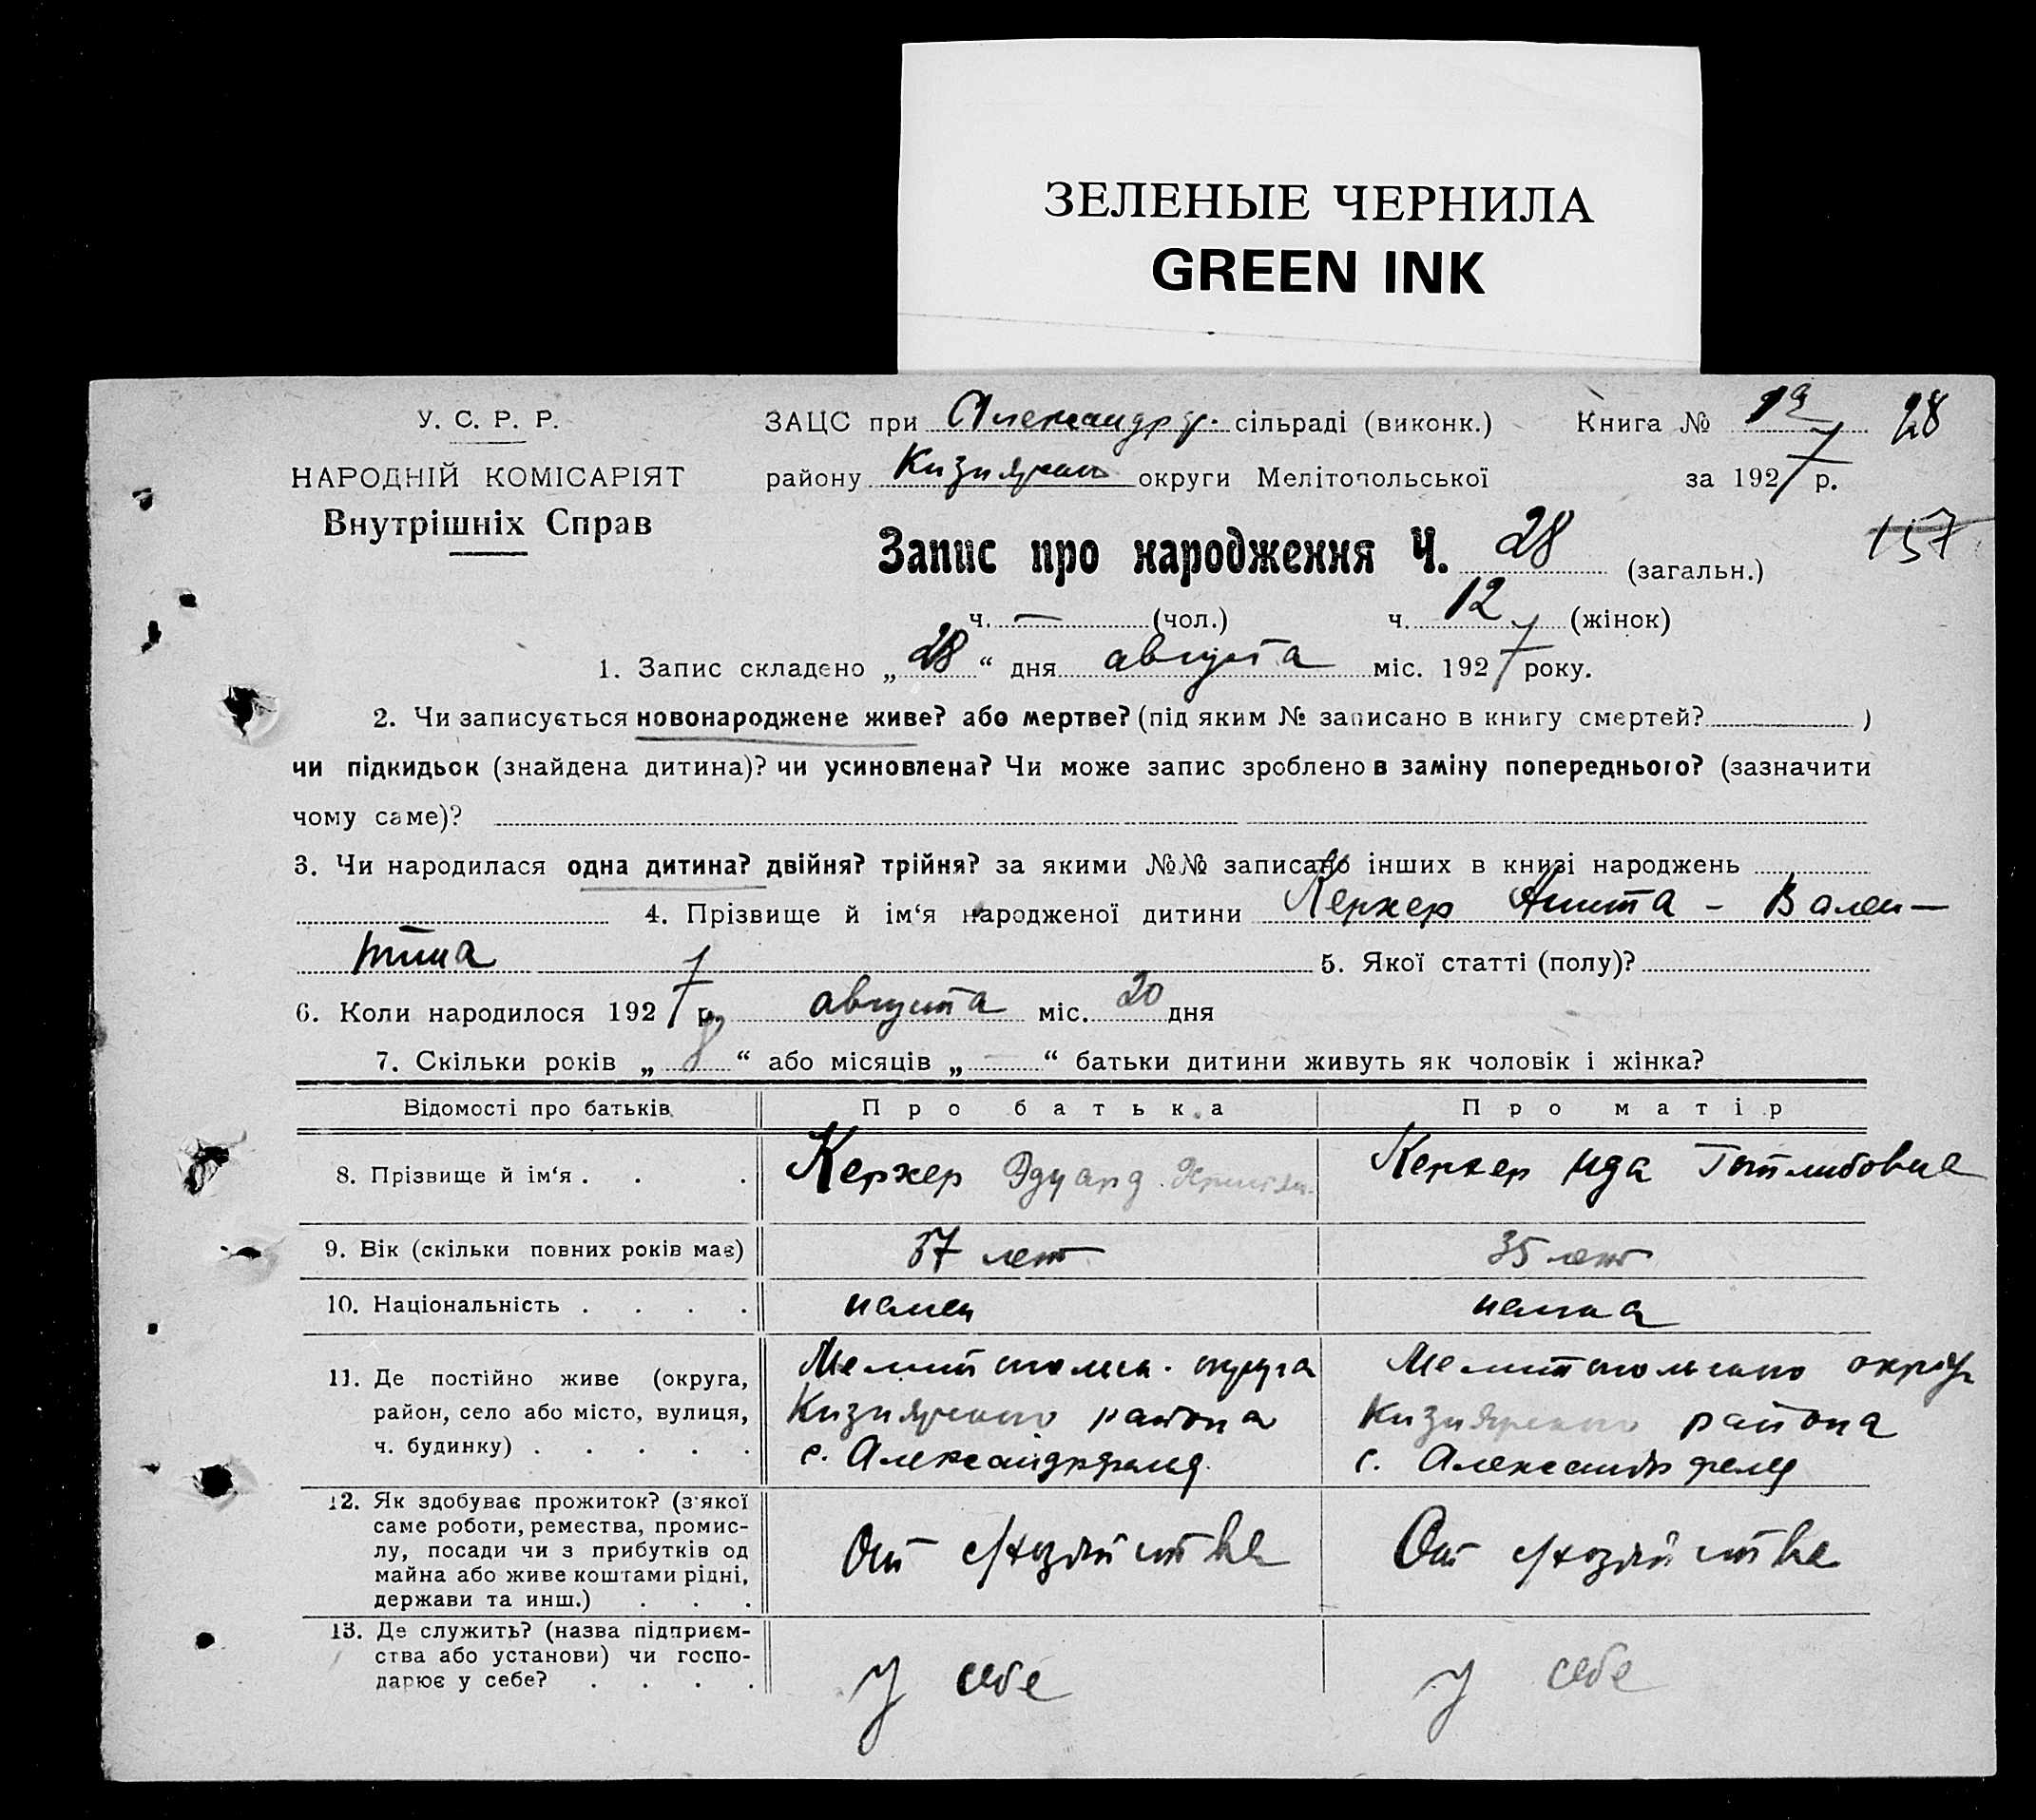 ЗЕЛЕНЫЕ ЧЕРНИЛА
GREEN INK
У. С. Р. Р.
НАРОДНІЙ КОМІСАРІЯТ
Внутрішніх Справ
ЗАЦС при Александрф. сільраді (виконк.) Книга № 28
району Кизиярск округи Мелітопольської за 1927 р.
Запис про народження Ч. 28 (загальн.) 157
ч. — (чол.) ч. 12 (жінок)
1. Запис складено „28“ дня августа міс. 1927 року.
2. Чи записується новонароджене живе? або мертве? (під яким № записано в книгу смертей? )
чи підкидьок (знайдена дитина)? чи усиновлена? Чи може запис зроблено в заміну попереднього? (зазначити
чому саме)?
3. Чи народилася одна дитина? двійня? трійня? за якими №№ записано інших в книзі народжень
4. Прізвище й ім‘я народженої дитини Керхер Анита - Вален-
тина 5. Якої статті (полу)?
6. Коли народилося 1927 р. августа міс. 20 дня
7. Скільки років „8“ або місяців „—“ батьки дитини живуть як чоловік і жінка?
Відомості про батьків Про батька Про матір
8. Прізвище й ім‘я . . . Керхер Эдуард Христиан. Керхер Ида Готлибовна
9. Вік (скільки повних років має) 37 лет 35 лет
10. Національність . . . . немец немка
11. Де постійно живе (округа, район, село або місто, вулиця, ч. будинку) . . . . .
Мелитопольск. округа Мелитопольского округ
Кизиярского района Кизиярского района
с. Александрфельд. с. Александрфельд
12. Як здобуває прожиток? (з'якої
саме роботи, ремества, промис-
лу, посади чи з прибутків од
майна або живе коштами рідні,
держави та инш.) . . .
От с/хозяйства От с/хозяйства
13. Де служить? (назва підприєм-
ства або установи) чи госпо-
дарює у себе? . . . .
У себе У себе